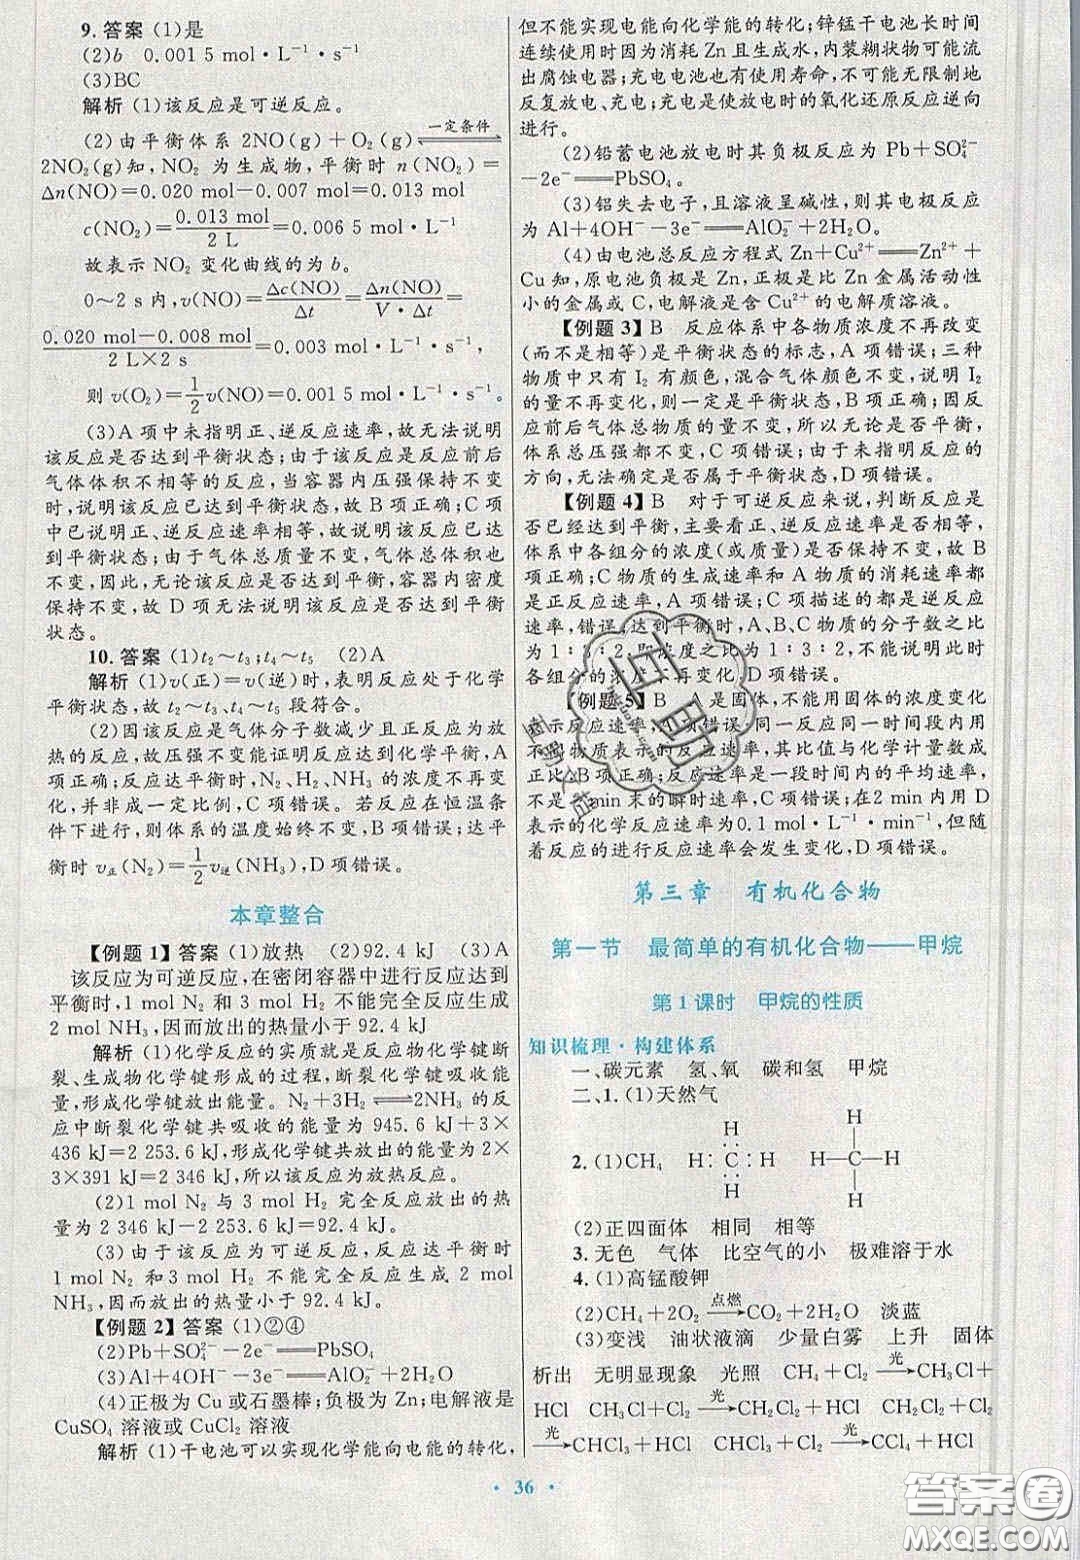 9. 答案 (1)是
(2)b 0.001 5 mol·L⁻¹·s⁻¹
(3)BC
解析 (1)该反应是可逆反应。
(2)由平衡体系 2NO(g)+O₂(g)⇌(一定条件)
2NO₂(g)知,NO₂ 为生成物,平衡时 n(NO₂)=
Δn(NO)=0.020 mol-0.007 mol=0.013 mol
c(NO₂)=0.013 mol/2 L=0.006 5 mol·L⁻¹
故表示 NO₂ 变化曲线的为 b。
0~2 s内,v(NO)=Δc(NO)/Δt=Δn(NO)/V·Δt=
0.020 mol-0.008 mol/2 L×2 s=0.003 mol·L⁻¹·s⁻¹,
则 v(O₂)=1/2v(NO)=0.001 5 mol·L⁻¹·s⁻¹。
(3)A 项中未指明正、逆反应速率,故无法说明
该反应是否达到平衡状态;由于该反应是反应前后
气体体积不相等的反应,当容器内压强保持不变
时,说明该反应已达到平衡状态,故 B 项正确;C 项
中已说明正、逆反应速率相等,故说明该反应已达
到平衡状态;由于气体总质量不变,气体总体积也
不变,因此,无论该反应是否达到平衡,容器内密度
保持不变,故 D 项无法说明该反应是否达到平衡
状态。
10. 答案 (1)t₂~t₃;t₄~t₅ (2)A
解析 (1)v(正)=v(逆)时,表明反应处于化学
平衡状态,故 t₂~t₃、t₄~t₅ 段符合。
(2)因该反应是气体分子数减少且正反应为放
热的反应,故压强不变能证明反应达到化学平衡,A
项正确;反应达平衡时,N₂、H₂、NH₃ 的浓度不再变
化,并非成一定比例,C 项错误。若反应在恒温条
件下进行,则体系的温度始终不变,B 项错误;达平
衡时 v正(N₂)=1/2v逆(NH₃),D 项错误。
本章整合
【例题 1】答案 (1)放热 (2)92.4 kJ (3)A
该反应为可逆反应,在密闭容器中进行该反应达到
平衡时,1 mol N₂ 和 3 mol H₂ 不能完全反应生成
2 mol NH₃,因而放出的热量小于 92.4 kJ
解析 (1)化学反应的实质就是反应物化学键断
裂、生成物化学键形成的过程,断裂化学键吸收能
量,形成化学键放出能量。N₂+3H₂⇌2NH₃ 的反
应中断裂化学键共吸收的能量为 945.6 kJ+3×
436 kJ=2 253.6 kJ,形成化学键共放出的能量为 2×
3×391 kJ=2 346 kJ,所以该反应为放热反应。
(2)1 mol N₂ 与 3 mol H₂ 完全反应放出的热
量为 2 346 kJ-2 253.6 kJ=92.4 kJ。
(3)由于该反应为可逆反应,反应达平衡时
1 mol N₂ 和 3 mol H₂ 不能完全反应生成 2 mol
NH₃,因而放出的热量小于 92.4 kJ。
【例题 2】答案 (1)②④
(2)Pb+SO₄²⁻-2e⁻══PbSO₄
(3)Al+4OH⁻-3e⁻══AlO₂⁻+2H₂O
(4)正极为 Cu 或石墨棒;负极为 Zn;电解液是
CuSO₄ 溶液或 CuCl₂ 溶液
解析 (1)干电池可以实现化学能向电能的转化,
但不能实现电能向化学能的转化;锌锰干电池长时间
连续使用时因为消耗 Zn 且生成水,内装糊状物可能流
出腐蚀电器;充电电池也有使用寿命,不可能无限制地
反复放电、充电;充电是使放电时的氧化还原反应逆向
进行。
(2)铅蓄电池放电时其负极反应为 Pb+SO₄²⁻
-2e⁻══PbSO₄。
(3)铝失去电子,且溶液呈碱性,则其电极反应
为 Al+4OH⁻-3e⁻══AlO₂⁻+2H₂O。
(4)由电池总反应方程式 Zn+Cu²⁺══Zn²⁺+
Cu 知,原电池负极是 Zn,正极是比 Zn 金属活动性
小的金属或 C,电解液是含 Cu²⁺的电解质溶液。
【例题 3】B 反应体系中各物质浓度不再改变
(而不是相等)是平衡状态的标志,A 项错误;三种
物质中只有 I₂ 有颜色,混合气体颜色不变,说明 I₂
的量不再变化,则一定是平衡状态,B 项正确;因反
应前后气体总物质的量不变,无论是否平衡,
体系总压强都不变,C 项错误;由于反应前后气体
方向,无法确定是否属于平衡状态,D 项错误。
【例题 4】B 对于可逆反应来说,判断反应是
否已经达到平衡,主要看正、逆反应速率是否相等,
体系中各组分的浓度(或质量)是否保持不变。故 B
项正确;C 物质的生成速率和 A 物质的消耗速率都
是正反应速率,A 项错误;C 项描述的都是逆反应
速率,C项错误;达到平衡时,A、B、C 的分子数之比
为 1∶3∶2,即浓度之比为 1∶3∶2,此时
各组分的浓度不一定不再变化,D 项错误。
【例题 5】B A 是固体,不能用固体的浓度变化
表示反应速率,A项错误;同一反应同一时间段内用
不同物质表示的反应速率,其比值与化学计量数成
正比,B 项正确;反应速率是一段时间内的平均速率,
不是2 min 末的瞬时速率,C 项错误;在2 min内用 D
表示的化学反应速率为0.1 mol·L⁻¹·min⁻¹,但随
着反应的进行反应速率会发生变化,D 项错误。
第三章 有机化合物
第一节 最简单的有机化合物——甲烷
第 1 课时 甲烷的性质
知识梳理·构建体系
一、碳元素 氢、氧 碳和氢 甲烷
二、1. (1)天然气
H H
2. (1)CH₄ H∶C∶H H—C—H
H H
(2)正四面体 相同 相等
3. 无色 气体 比空气的小 极难溶于水
4. (1)高锰酸钾
(2)CH₄+2O₂ 点燃→ CO₂+2H₂O 淡蓝
(3)变浅 油状液滴 少量白雾 上升 固体
析出 无明显现象 光照 CH₄+Cl₂ 光→ CH₃Cl+
HCl CH₃Cl+Cl₂ 光→ CH₂Cl₂+HCl CH₂Cl₂+
Cl₂ 光→ CHCl₃+HCl CHCl₃+Cl₂ 光→ CCl₄+HCl
· 36 ·
答案圈
MXQE.COM